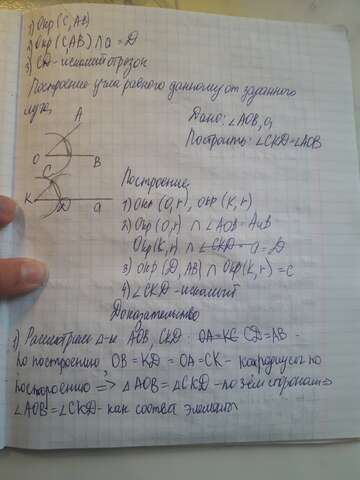 1) Окр(C, AB)
2) Окр(C, AB) ∩ a = D
3) CD - искомый отрезок
Построение угла равного данному от заданного
луча
A
Дано: ∠AOB, a
O B
Построить: ∠CKD = ∠AOB
C
K D a
Построение
1) Окр(O, r), окр(K, r)
2) Окр(O, r) ∩ ∠AOB = A и B
Окр(K, r) ∩ a = D
3) Окр(D, AB) ∩ Окр(K, r) = C
4) ∠CKD - искомый
Доказательство
1) Рассмотрим Δ-и AOB, CKD: CD = AB -
по построению, OB = KD = OA = CK - как радиусы по
построению => ΔAOB = ΔCKD - по 3ём сторонам =>
∠AOB = ∠CKD - как соотв элементы